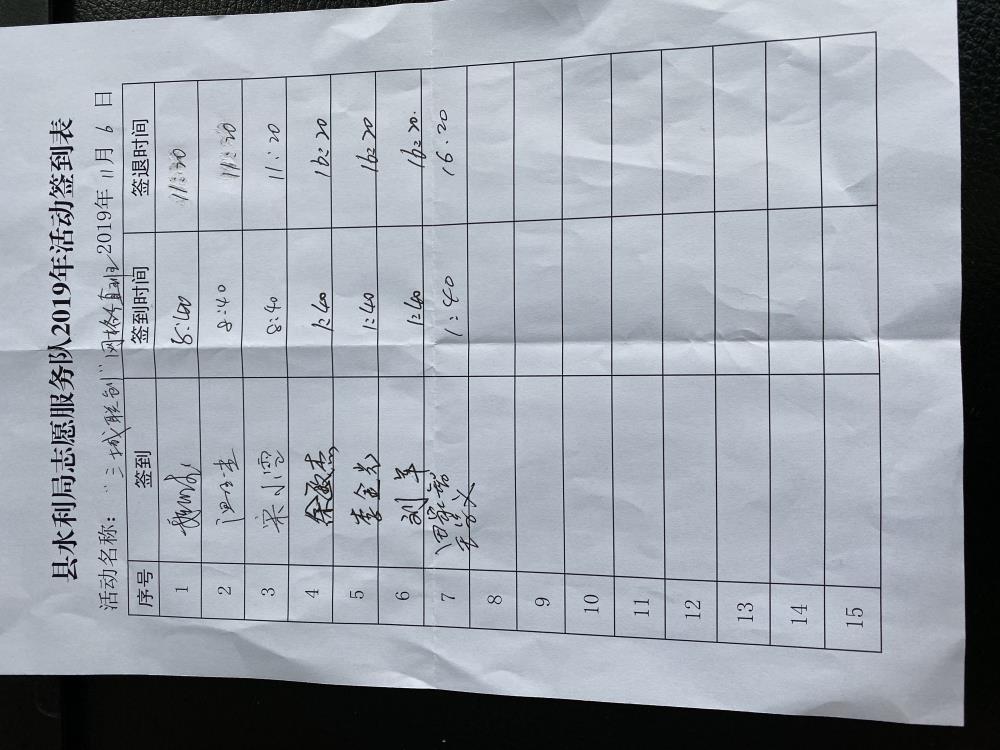 县水利局志愿服务队2019年活动签到表
活动名称："三城联创"网格值班 2019年 11 月 6 日
序号 签到 签到时间 签退时间
1 8:40 11:20
2 8:40 11:20
3 宋小雪 8:40 11:20
4 徐毅杰 1:40 16:20
5 李金光 1:40 16:20
6 刘军 1:40 16:20
7 1:40 16:20
8
9
10
11
12
13
14
15